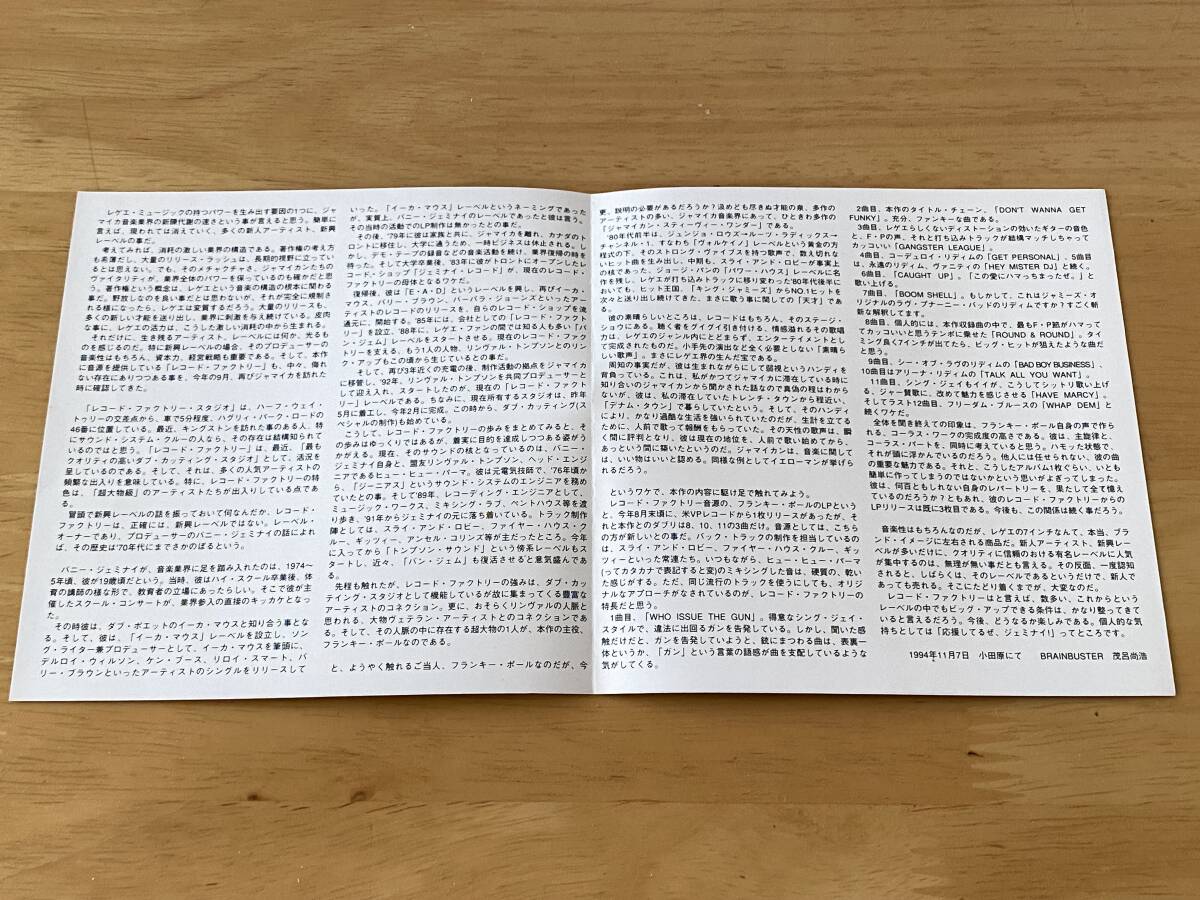 レゲエ・ミュージックの持つパワーを生み出す要因の1つに、ジャ
マイカ音楽業界の新陳代謝の速さという事が言えると思う。簡単に
言えば、現われては消えていく、多くの新人アーティスト、新興
レーベルの事だ。
考えてみれば、消耗の激しい業界の構造である。著作権の考え方
も希薄だし、大量のリリース・ラッシュは、長期的視野に立ってい
るとは思えない。でも、そのメチャクチャさ、ジャマイカンたちの
ヴァイタリティが、業界全体のパワーを保っているのも確かだと思
う。著作権という概念は、レゲエという音楽の根本に関わる
事だ。野放しなのを良い事だとは思わないが、それが完全に規制さ
れる様になったら、レゲエは変質するだろう。大量のリリースも、
多くの新しい才能を送り出し、業界に刺激を与え続けている。皮肉
な事に、レゲエの活力は、こうした激しい消耗の中から生まれる。
それだけに、生き残るアーティスト、レーベルには何か、光るも
のを感じるのだ。特に新興レーベルの場合、そのプロデューサーの
音楽性はもちろん、資本力、経営戦略も重要である。そして、本作
に音源を提供している「レコード・ファクトリー」も、中々、侮れ
ない存在にありつつある事を、今年の9月、再びジャマイカを訪れた
時に確認してきた。
「レコード・ファクトリー・スタジオ」は、ハーフ・ウェイ・
トゥリーの交差点から、車で5分程度、ハグリィ・パーク・ロードの
46番に位置している。最近、キングストンを訪れた事のある人、特
にサウンド・システム・クルーの人なら、その存在は結構知られて
いるのではと思う。「レコード・ファクトリー」は、最近、「最も
クオリティの高いダブ・カッティング・スタジオ」として、活況を
呈しているのである。そして、それは、多くの人気アーティストの
頻繁な出入りを意味している。特に、レコード・ファクトリーの特
色は、「超大物級」のアーティストたちが出入りしている点であ
る。
冒頭で新興レーベルの話を振っておいて何なんだか、レコード・
ファクトリーは、正確には、新興レーベルではない。レーベル・
オーナーであり、プロデューサーのバニー・ジェミナイの話によれ
ば、その歴史は'70年代にまでさかのぼるという。
バニー・ジェミナイが、音楽業界に足を踏み入れたのは、1974〜
5年頃、彼が19歳頃だという。当時、彼はハイ・スクール卒業後、体
育の講師の様な形で、教育者の立場にあったらしい。そこで彼が主
催したスクール・コンサートが、業界参入の直接のキッカケとなっ
た。
その時彼は、ダブ・ポエットのイーカ・マウスと知り合う事とな
る。そして、彼は、「イーカ・マウス」レーベルを設立し、ソン
グ・ライター兼プロデューサーとして、イーカ・マウスを筆頭に、
デルロイ・ウィルソン、ケン・ブース、リロイ・スマート、バ
リー・ブラウンといったアーティストのシングルをリリースして
いった。「イーカ・マウス」レーベルというネーミングであった
が、実質上、バニー・ジェミナイのレーベルであったと彼は言う。
その当時の活動でのLP制作は無かったとの事だ。
その後、'79年に彼は家族と共に、ジャマイカを離れ、カナダのト
ロントに移住し、大学に通うため、一時ビジネスは休止される。し
かし、デモ・テープの録音などの音楽活動を続け、業界復帰の時を
待った。そして大学卒業後、'83年に彼がトロントにオープンしたレ
コード・ショップ「ジェミナイ・レコード」が、現在のレコード・
ファクトリーの母体となるワケだ。
復帰後、彼は「E・A・D」というレーベルを興し、再びイーカ・
マウス、バリー・ブラウン、バーバラ・ジョーンズといったアー
ティストのレコードのリリースを、自らのレコード・ショップを流
通元に、開始する。'85年には、会社としての「レコード・ファクト
リー」を設立、'88年に、レゲエ・ファンの間では知る人も多い「バ
ン・ジェム」レーベルをスタートさせる。現在のレコード・ファク
トリーを支える、もう1人の人物、リンヴァル・トンプソンとのリン
ク・アップもこの頃から生じているとの事だ。
そして、再び3年近くの充電の後、制作活動の拠点をジャマイカ
に移管し、'92年、リンヴァル・トンプソンを共同プロデューサーと
して迎え入れ、スタートしたのが、現在の「レコード・ファクト
リー」レーベルである。ちなみに、現在所有するスタジオは、昨年
5月に着工し、今年2月に完成。この時から、ダブ・カッティング(ス
ペシャルの制作)も始めている。
こうして、レコード・ファクトリーの歩みをまとめてみると、そ
の歩みはゆっくりではあるが、着実に目的を達成しつつある姿がう
かがえる。現在、そのサウンドの核となっているのは、バニー・
ジェミナイ自身と、盟友リンヴァル・トンプソン、ヘッド・エンジ
ニアであるヒュー・ヒュー・パーマ。彼は元電気技師で、'76年頃か
ら、「ジーニアス」というサウンド・システムのエンジニアを務め
ていたとの事。そして'89年、レコーディング・エンジニアとして、
ミュージック・ワークス、ミキシング・ラブ、ペントハウス等を渡
り歩き、'91年からジェミナイの元に落ち着いている。トラック制作
陣としては、スライ・アンド・ロビー、ファイヤー・ハウス・ク
ルー、ギッツィー、アンセル・コリンズ等が主だったところ。今年
に入ってから「トンプソン・サウンド」という傍系レーベルもス
タートし、近々、「バン・ジェム」も復活させると意気盛んであ
る。
先程も触れたが、レコード・ファクトリーの強みは、ダブ・カッ
ティング・スタジオとして機能しているが故に集まってくる豊富な
アーティストのコネクション。更に、おそらくリンヴァルの人脈と
思われる、大物ヴェテラン・アーティストとのコネクションであ
る。そして、その人脈の中に存在する超大物の1人が、本作の主役、
フランキー・ポールなのである。
と、ようやく触れるご当人、フランキー・ポールなのだが、今
更、説明の必要があるだろうか？汲めども尽きぬ才能の泉、多作の
アーティストの多い、ジャマイカ音楽界にあって、ひときわ多作の
「ジャマイカン・スティーヴィー・ワンダー」である。
'80年代前半は、ジュンジョ・ロウズ→ルーツ・ラディックス→
チャンネル・1、すなわち「ヴォルケイノ」レーベルという黄金の方
程式の下、そのストロング・ヴァイブスを持つ歌声で、数え切れな
いヒット曲を生み出し、中期も、スライ・アンド・ロビーが事実上
の核であった、ジョージ・パンの「パワー・ハウス」レーベルに名
作を残し、レゲエが打ち込みトラックに移り変わった'80年代後半に
おいても、ヒット王国、「キング・ジャミーズ」からNO.1ヒットを
次々と送り出し続けてきた、まさに歌う事に関しての「天才」であ
る。
彼の素晴らしいところは、レコードはもちろん、そのステージ・
ショウにある。聴く者をグイグイ引き付ける、情感溢れるその歌唱
力は、レゲエのジャンル内にとどまらず、エンターテイメントとし
て完成されたものだ。小手先の演出など全く必要としない「素晴ら
しい歌声」。まさにレゲエ界の生んだ宝である。
周知の事実だが、彼は生まれながらにして弱視というハンディを
背負っている。これは、私がかつてジャマイカに滞在している時に
知り合いのジャマイカンから聞かされた話なので真偽の程はわから
ないが、彼は、私の滞在していたトレンチ・タウンから程近い、
「デナム・タウン」で暮らしていたという。そして、そのハンディ
により、かなり過酷な生活を強いられていたのだが、生計を立てる
ために、人前で歌って報酬をもらっていた。その天性の歌声は、瞬
く間に評判となり、彼は現在の地位を、人前で歌い始めてから、
あっという間に築いたというのだ。ジャマイカンは、音楽に関して
は、いい物はいいと認める。同様な例としてイエローマンが挙げら
れるだろう。
というワケで、本作の内容に駆け足で触れてみよう。
レコード・ファクトリー音源の、フランキー・ポールのLPという
と、今年8月末頃に、米VPレコードから1枚リリースがあったが、そ
れと本作とのダブりは8、10、11の3曲だけ。音源としては、こちら
の方が新しいとの事だ。バック・トラックの制作を担当しているの
は、スライ・アンド・ロビー、ファイヤー・ハウス・クルー、ギッ
ツィーといった常連たち。いつもながら、ヒュー・ヒュー・パーマ
(ってカタカナで表記すると変)のミキシングした音は、硬質の、乾い
た感じがする。ただ、同じ流行のトラックを使うにしても、オリジ
ナルなアプローチがなされているのが、レコード・ファクトリーの
特長だと思う。
1曲目、「WHO ISSUE THE GUN」。得意なシング・ジェイ・
スタイルで、違法に出回るガンを告発している。しかし、聞いた感
触だけだと、ガンを告発していようと、銃にまつわる曲は、表裏一
体というか、「ガン」という言葉の語感が曲を支配しているような
気がしてくる。
2曲目、本作のタイトル・チューン、「DON'T WANNA GET
FUNKY」。充分、ファンキーな曲である。
3曲目、レゲエらしくないディストーションの効いたギターの音色
と、F・Pの声、それと打ち込みトラックが結構マッチしちゃって
カッコいい「GANGSTER LEAGUE」。
4曲目、コーデュロイ・リディムの「GET PERSONAL」、5曲目
は、永遠のリディム、ヴァニティの「HEY MISTER DJ」と続く。
6曲目、「CAUGHT UP」。「この愛にハマっちまったぜ」。と
歌い上げる。
7曲目、「BOOM SHELL」。もしかして、これはジャミーズ・オ
リジナルのラヴ・プナーニー・バッドのリディムですか？すごく斬
新な解釈してます。
8曲目、個人的には、本作収録曲の中で、最もF・P節がハマって
てカッコいいと思うテンポに乗せた「ROUND & ROUND」。タイ
ミング良く7インチが出てたら、ビッグ・ヒットが狙えたような曲だ
と思う。
9曲目、シー・オブ・ラヴのリディムの「BAD BOY BUSINESS」、
10曲目はアリーナ・リディムの「TALK ALL YOU WANT」。
11曲目、シング・ジェイもイイが、こうしてシットリ歌い上げ
る、ジャー賛歌に、改めて魅力を感じさせる「HAVE MARCY」。
そしてラスト12曲目、フリーダム・ブルースの「WHAP DEM」と
続くワケだ。
全体を聞き終えての印象は、フランキー・ポール自身の声で作ら
れる、コーラス・ワークの完成度の高さである。彼は、主旋律と、
コーラス・パートを、同時に考えていると思う。ハモった状態で、
それが頭に浮かんでいるのだろう。他人には任せられない、彼の曲
の重要な魅力である。それと、こうしたアルバム1枚ぐらい、いとも
簡単に作ってしまうのではないかという思いがよぎってしまった。
彼は、何百ともしれない自身のレパートリーを、果たして全て憶え
ているのだろうか？ともあれ、彼のレコード・ファクトリーからの
LPリリースは既に3枚目である。今後も、この関係は続く事だろう。
音楽性はもちろんなのだが、レゲエの7インチなんて、本当、ブラ
ンド・イメージに左右される商品だ。新人アーティスト、新興レー
ベルが多いだけに、クオリティに信頼のおける有名レーベルに人気
が集中するのは、無理が無い事だとも言える。その反面、一度認知
されると、しばらくは、そのレーベルであるというだけで、新人で
あっても売れる。そこにたどり着くまでが、大変なのだ。
レコード・ファクトリーと言えば、数多い、これからという
レーベルの中でもビッグ・アップできる条件は、かなり整ってきて
いると言えるだろう。今後、どうなるか楽しみである。個人的な気
持ちとしては「応援してるぜ、ジェミナイ!」ってところです。
1994年11月7日 小田原にて BRAINBUSTER 茂呂尚浩